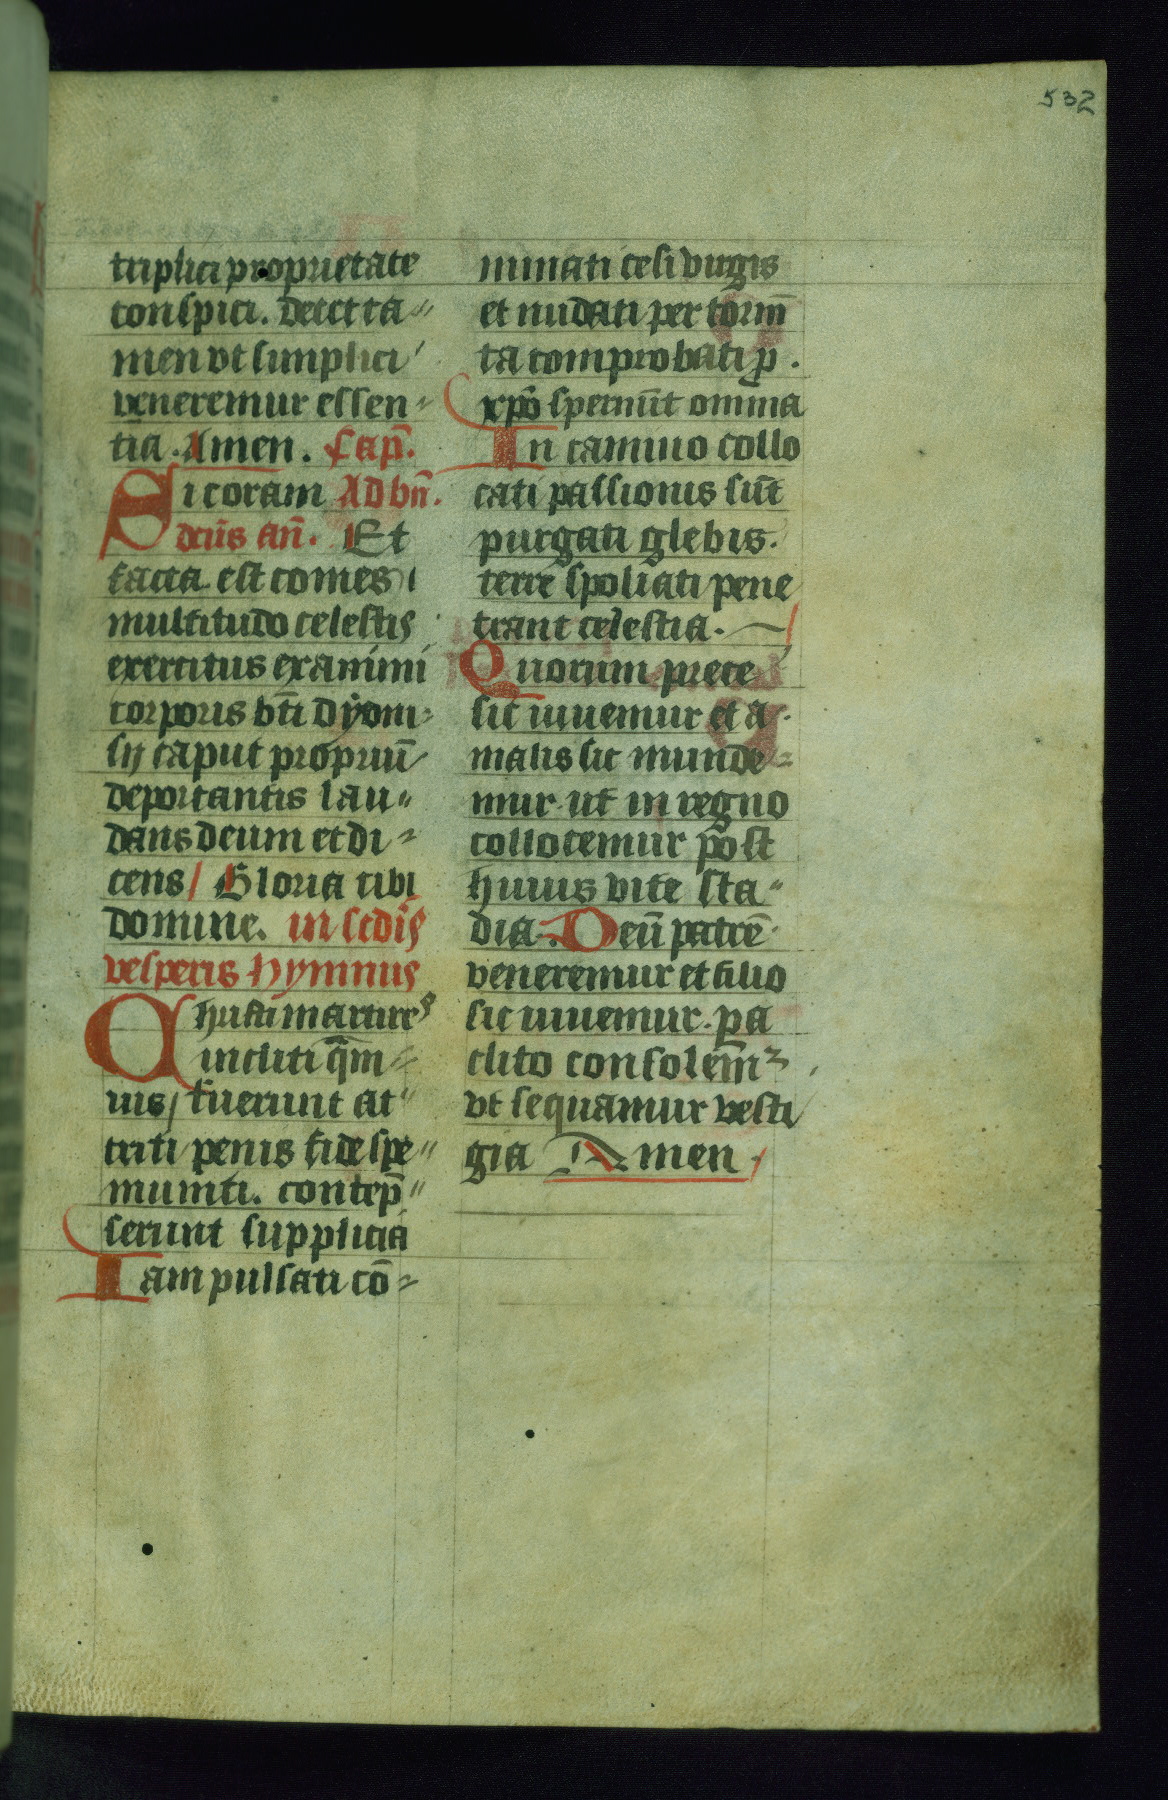 532
triplici proprietate
conspici. decet ta
men vt simplici
veneremur essen
tia. Amen. Cap̄.
Si coram Ad bn̄.
dcūs an̄. Et
facta est comes
multitudo celestis
exercitus eximini
corporis bt̄i dyoni
sij caput propriū
deportantis lau
dans deum et di
cens Gloria tibi
domine. in scdīs
vesperis Hymnus
Christi martires
incliti q̄m
uis fuerunt at
triti penis fide spe
muniti. contēp
serunt supplicia
Iam pulsati cō
minati cesi virgis
et nudati per torm̄
ta comprobati p̲.
xpō spernūt omnia
In camino collo
cati passionis sūt
purgati glebis.
terre spoliati pene
trant celestia.
Quorum prece
sic iuuemur et a
malis sic munde
mur ut in regno
collocemur post
huius vite sta
dia. Deū patrē
veneremur et filio
sic iuuemur. pa
clito consolem̄
vt sequamur vesti
gia Amen